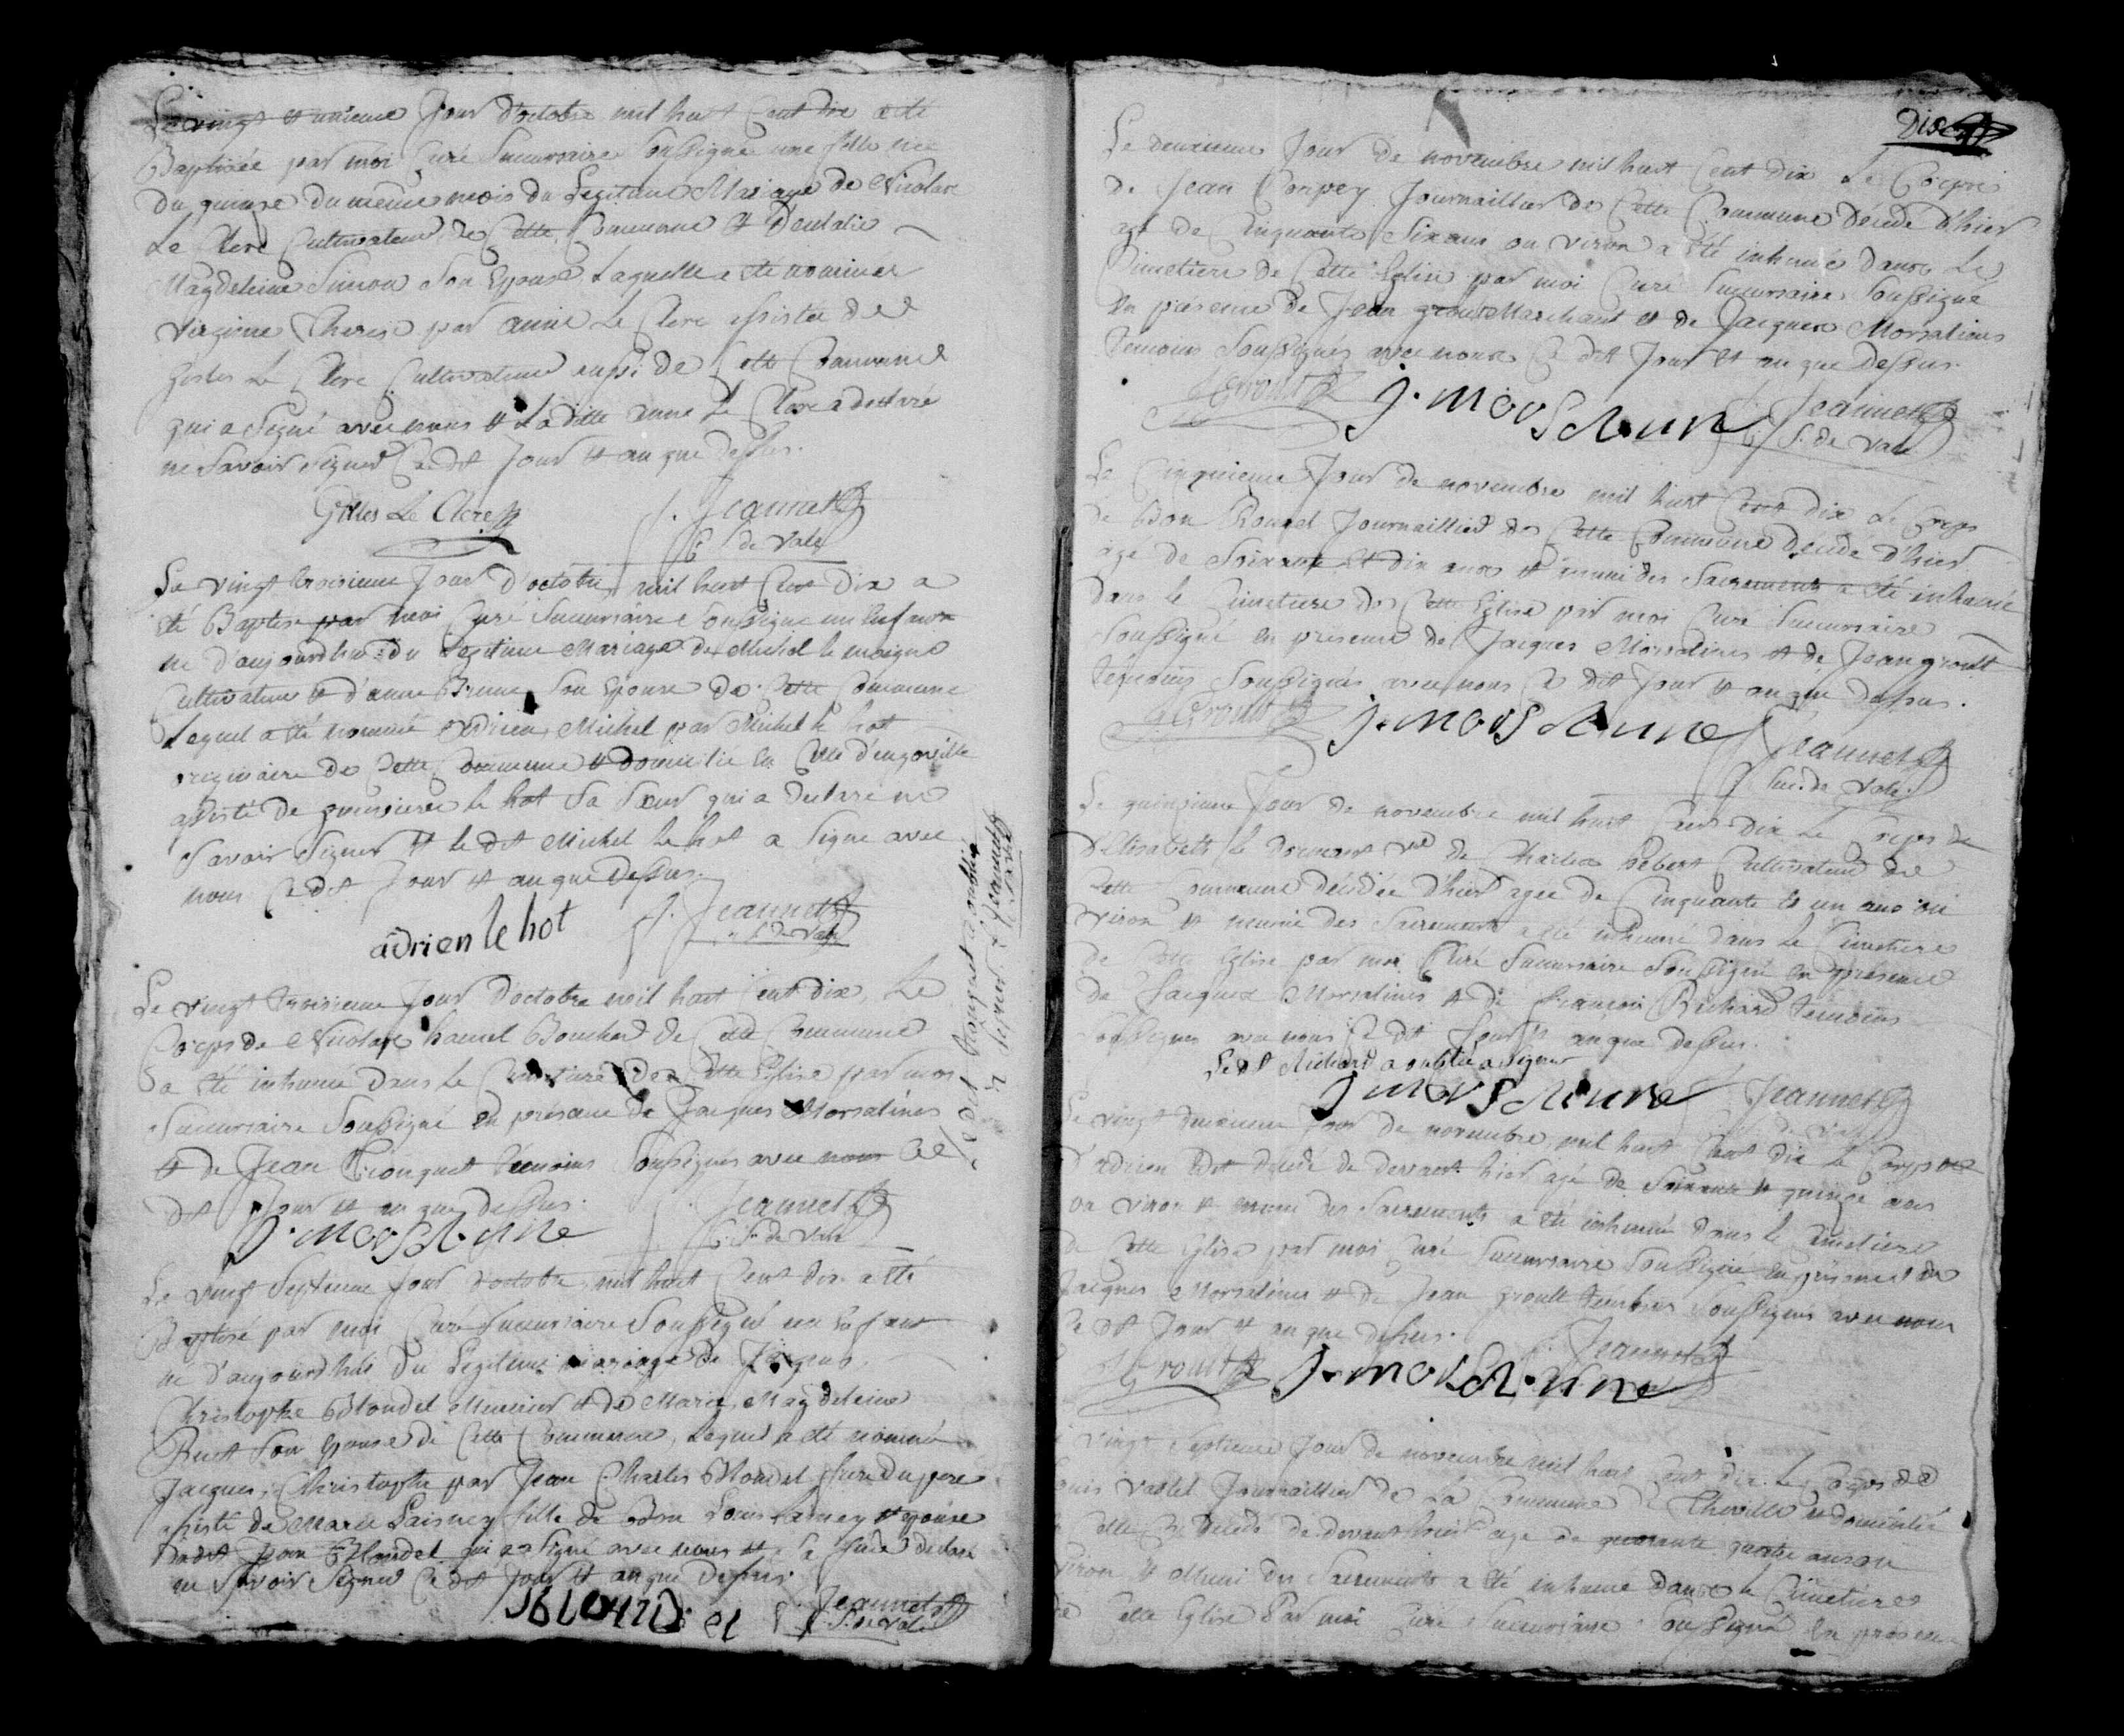 Le vingt et unieme Jour d'octobre mil huit Cent dix a été
Baptisée par moi Curé Succursaire Soussigné une fille née
du quinze du meme mois du Legitime Mariage de Nicolas
Le Clerc Cultivateur de Cette Commune et d'Eulalie
Magdeleine Simon Son Epouse Laquelle a été nommée
Virginie Therese par anne Le Clerc assistée de
Gilles Le Clerc Cultivateur aussi de Cette Commune
qui a Signé avec nous et La ditte anne Le Clerc a declaré
ne Savoir Signer Ce dit Jour et an que dessus.
Gilles Le Clerc
f. Jeannet
C S de Vale
Le vingt troisieme Jour d'octobre mil huit Cent Dix a
été Baptisé par moi Curé Succursaire Soussigné un Enfant
né d'aujourdhui du Legitime Mariage de Michel le
Cultivateur et d'anne Son Epouse De Cette Commune
Lequel a été nommé Adrien Michel par Michel le hot
originaire de Cette Commune et domicilié en Celle d'
assisté de le hot Sa Sœur qui a declaré ne
Savoir Signer et le dit Michel Le hot a Signé avec
nous Ce dit Jour et an que Dessus.
adrien le hot
f. Jeannet
S de Vale
Le vingt troisieme Jour d'octobre mil huit Cent dix, Le
Corps de Nicolas hamel Boucher de Cette Commune
a été inhumé dans Le Cimetiere de Cette Eglise par moi
Succursaire Soussigné en présence de Jacques Morsalines
et de Jean Tronquet temoins Soussignés avec nous Ce
dit Jour et an que dessus.
j. morsaline
f. Jeannet
C. S. de Vale
Le dit Tronquet a oublié
à Signer. f Jeannet
Le vingt Septieme Jour d'octobre mil huit Cent Dix a été
Baptisé par moi Curé Succursaire Soussigné un Enfant
né d'aujourdhui Du Legitime mariage de Jacques
Christophe Blondel Meunier et de Marie Magdeleine
Buot Son Epouse de Cette Commune, Lequel a été nommé
Jacques, Christophe par Jean Charles Blondel frere du pere
assisté de Marie Laisney fille de Bon Louis Laisney et epouse
dudit Jean Blondel qui a Signé avec nous et a declaré
ne Savoir Signer Ce dit Jour et an que Dessus.
Jeannet
S. de Vale
Dix
Le deuxieme Jour de novembre mil huit Cent dix Le Corps
de Jean Journaillier de Cette Commune décédé d'hier
agé de Cinquante Six ans ou viron a été inhumé dans Le
Cimetiere de Cette Eglise par moi Curé Succursaire Soussigné
en présence de Jean groult Marchant et de Jacques Morsalines
temoins Soussignés avec nous Ce dit Jour et an que Dessus.
j Groult
j. morsaline
f. Jeannet
C. S. de Vale
Le Cinquieme Jour de novembre mil huit Cent dix Le Corps
de Bon Journaillier de Cette Commune décédé d'hier
agé de Soixante et dix ans et muni des Sacrements a été inhumé
dans le Cimetiere de Cette Eglise par moi Curé Succursaire
Soussigné en présence de Jacques Morsalines et de Jean groult
témoins Soussignés avec nous Ce dit Jour et an que Dessus.
j Groult
j. morsaline
f. Jeannet
Suc. de Vale
Le quinzieme Jour de novembre mil huit Cent Dix Le Corps de
d'Elisabeth Le Dormant de Charles hebert Cultivateur de
Cette Commune décédée d'hier agée de Cinquante et un ans ou
viron et munie des Sacrements a été inhumé dans Le Cimetiere
de Cette Eglise par moi Curé Succursaire Soussigné en présence
de Jacques Morsalines et de François Richard temoins
Soussignés avec nous Ce dit Jour et an que dessus.
Le dit Richard a oublié a Signer
j morsaline
Jeannet
Le vingt deuxieme Jour de novembre mil huit Cent dix Le Corps de
d'Adrien décédé de devant hier agé de Soixante et quinze ans
ou viron et muni des Sacrements a été inhumé dans le Cimetiere
de Cette Eglise par moi Curé Succursaire Soussigné en présence de
Jacques Morsalines et de Jean groult temoins Soussignés avec nous
Ce dit Jour et an que dessus.
j Groult
j. morsaline
f. Jeannet
vingt Septieme Jour de novembre mil huit Cent dix Le Corps de
Louis Vastel Journaillier de La Commune de Theville et domicilié
Celle Ce decedé de devant hier agé de quarante quatre ans ou
viron et Muni des Sacrements a été inhumé dans le Cimetiere
de Cette Eglise Par moi Curé Succursaire Soussigné En présen